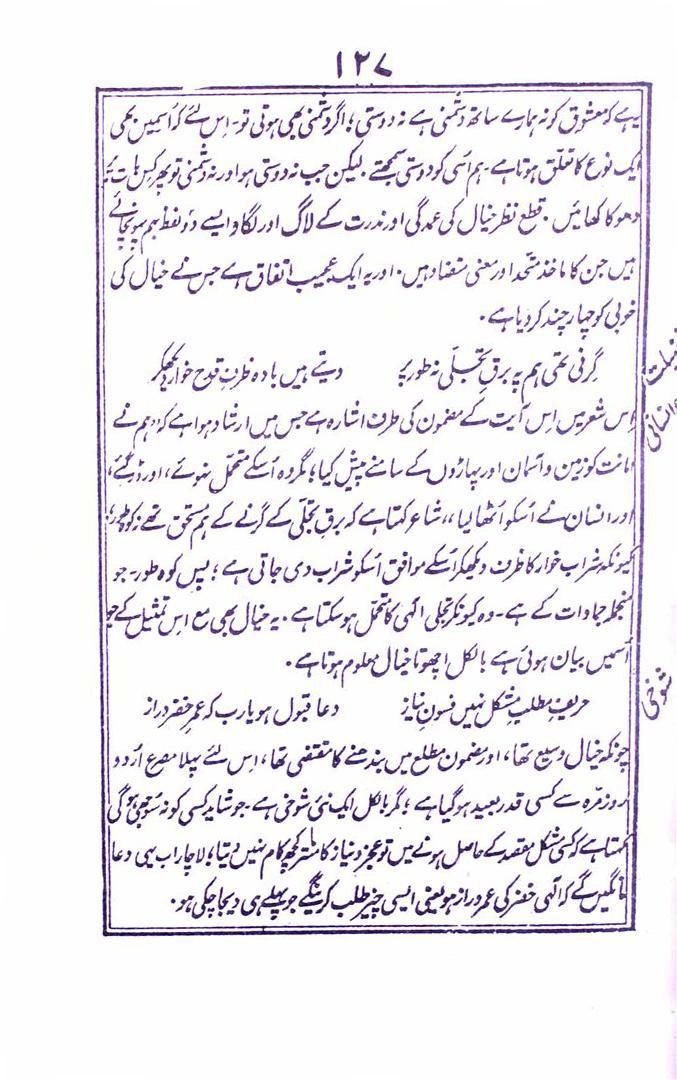 ۱۲۷
یہ ہے کہ معشوق کو نہ ہمارے ساتھ دشمنی ہے نہ دوستی؛ اگر دشمنی بھی ہوتی تو۔ اِس لئے کہ اُسمیں بھی
ایک نوع کا تعلق ہوتا ہے۔ ہم اُسی کو دوستی سمجھتے۔ لیکن جب نہ دوستی ہو اور نہ دشمنی تو پھر کس بات پر
دھوکا کھائیں۔ قطع نظر خیال کی عمدگی اور ندرت کے لاگ اور لگاو ایسے دو لفظ بہم پہونچائے
ہیں جن کا ماخذ متحد اور معنی متضاد ہیں۔ اور یہ ایک عجیب اتفاق ہے جس نے خیال کی
خوبی کو چہار چند کر دیا ہے۔
گرنی تھی ہم پہ برقِ تجلّی نہ طور پر دیتے ہیں بادہ ظرفِ قدح خوار دیکھکر
اِس شعر میں اِس آیت کے مضمون کی طرف اشارہ ہے جس میں ارشاد ہوا ہے کہ ،،ہم نے
امانت کو زمین و آسمان اور پہاڑوں کے سامنے پیش کیا؛ مگر وہ اُسکے متحمل نہوئے، اور ڈر گئے،
اور انسان نے اُسکو اُٹھا لیا،، شاعر کہتا ہے کہ برقِ تجلّی کے گرنے کے ہم مستحق تھے نہ کوہِ طور؛
کیونکہ شراب خوار کا ظرف دیکھکر اُسکے موافق اُسکو شراب دی جاتی ہے؛ پس کوہ طور۔ جو
منجملہ جمادات کے ہے۔ وہ کیونکر تجلی الٰہی کا متحمل ہو سکتا ہے۔ یہ خیال بھی مع اس تمثیل کے جو
اُسمیں بیان ہوئی ہے بالکل اچھوتا خیال معلوم ہوتا ہے۔
شوخی
حریفِ مطلبِ مشکل نہیں فسونِ نیاز دعا قبول ہو یارب کہ عمرِ خضر دراز
چونکہ خیال وسیع تھا، اور مضمون مطلع میں بندھنے کا مقتضی تھا، اس لئے پہلا مصرع اُردو
روزمرّہ سے کسی قدر بعید ہو گیا ہے؛ مگر بالکل ایک نئی شوخی ہے۔ جو شاید کسی کو نہ سوجھی ہوگی
کہتا ہے کہ کسی مشکل مقصد کے حاصل ہونے میں تو عجز و نیاز کا منتر کچھ کام نہیں دیتا؛ لاچار اب یہی دعا
مانگیں گے کہ الٰہی خضر کی عمر دراز ہو یعنی ایسی چیز طلب کرینگے جو پہلے ہی دیجا چکی ہو۔